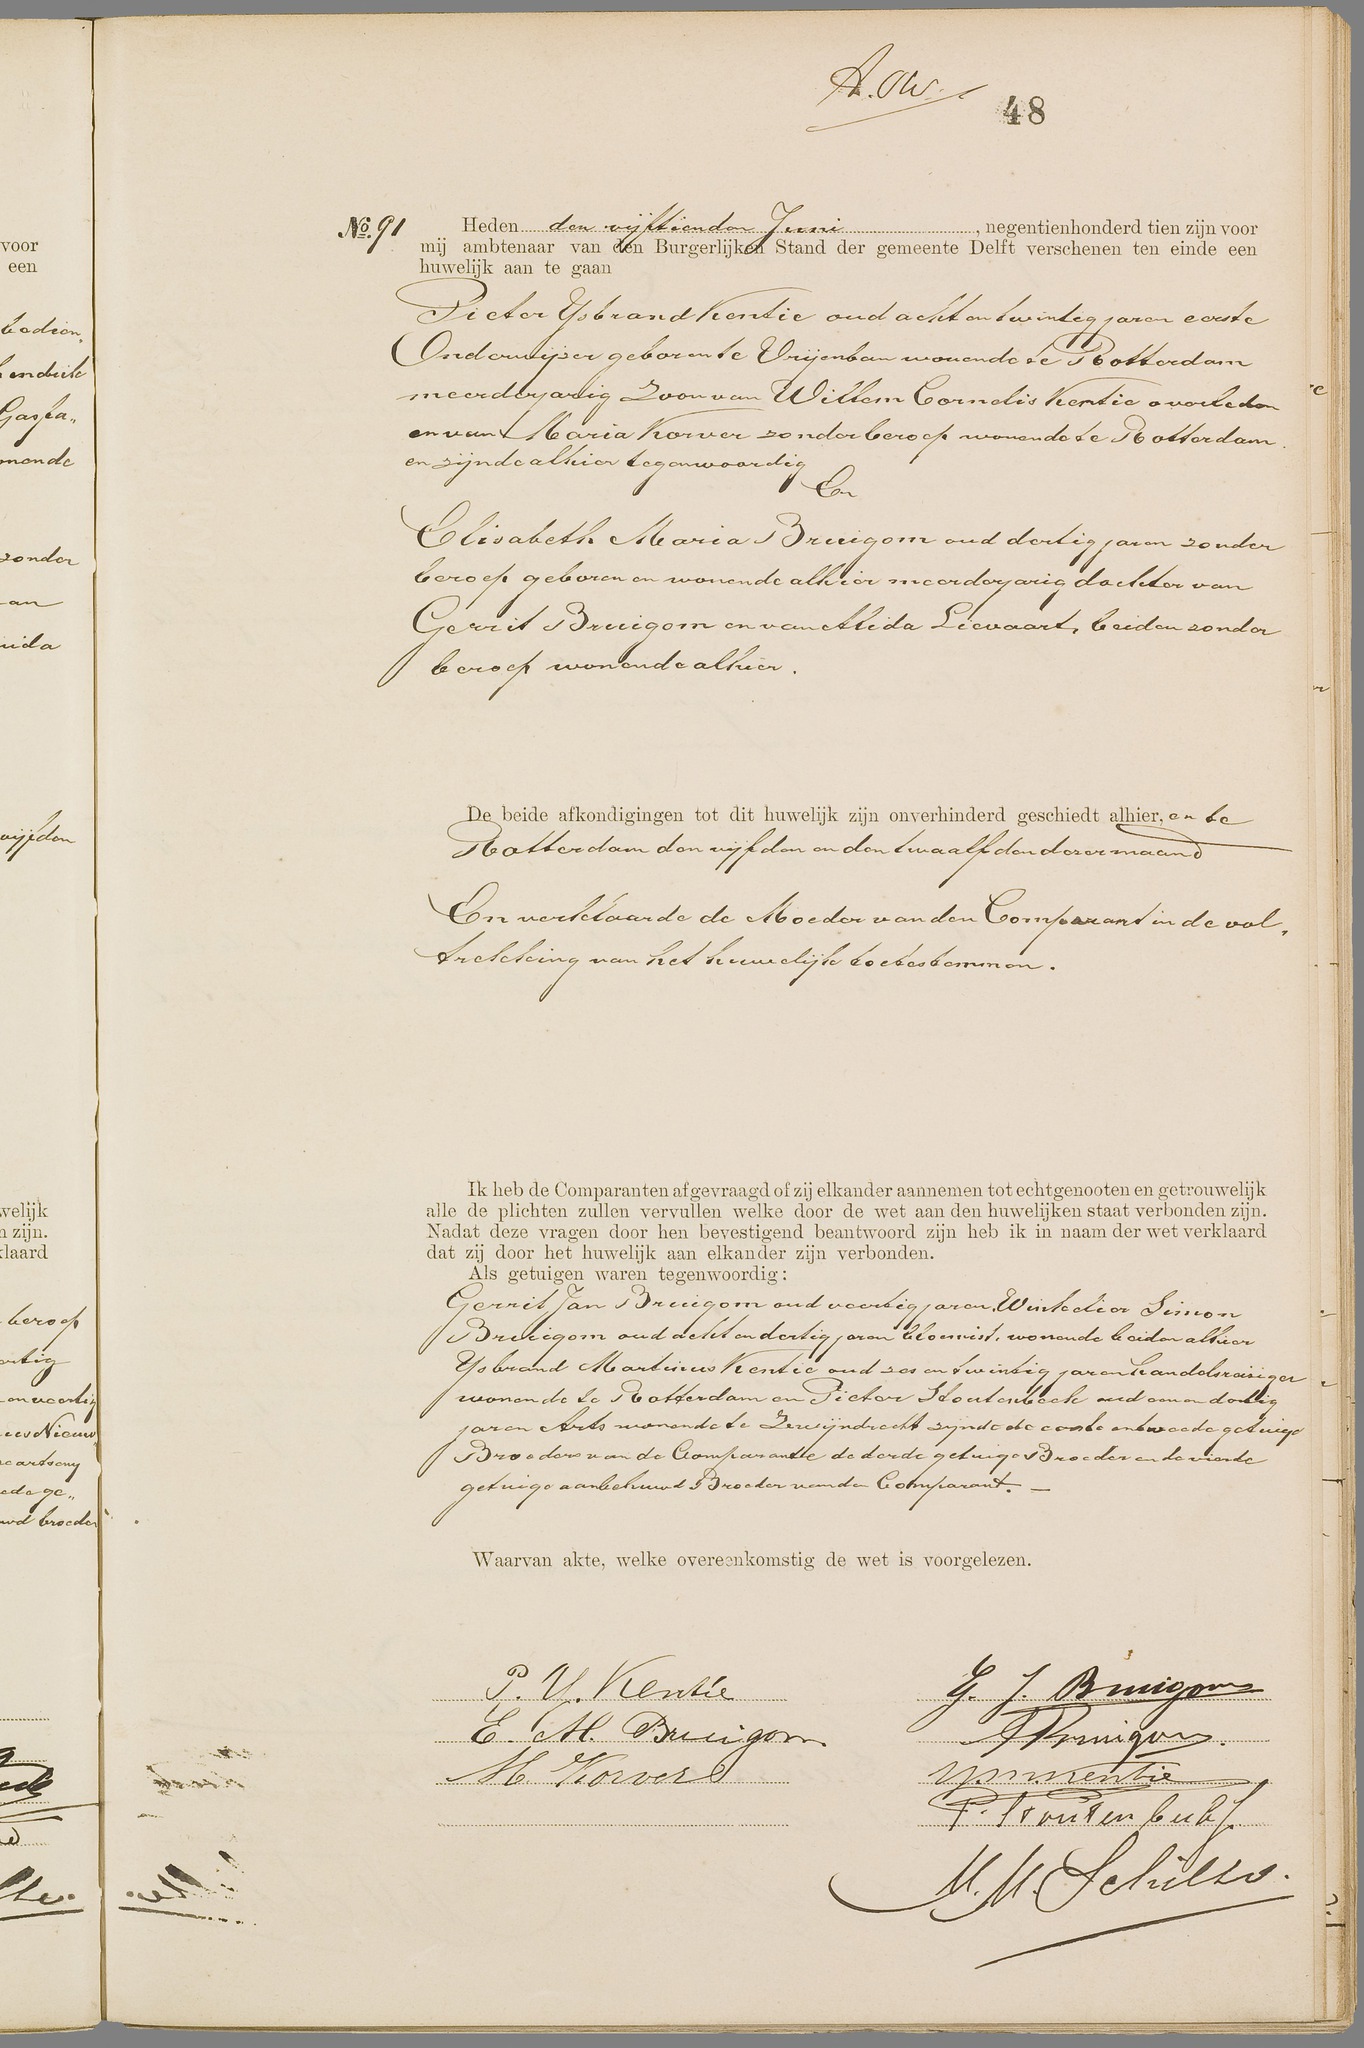 48
No. 91
Heden den vijftienden Juni, negentienhonderd tien zijn voor
mij ambtenaar van den Burgerlijken Stand der gemeente Delft verschenen ten einde een
huwelijk aan te gaan
Pieter IJsbrand Kentie oud acht en twintig jaren eerste
Onderwijzer geboren te Vrijenban wonende te Rotterdam
meerderjarig Zoon van Willem Cornelis Kentie overleden
en van Maria Korver zonder beroep wonende te Rotterdam
en zijnde alhier tegenwoordig
En
Elisabeth Maria Bruigom oud dertig jaren zonder
beroep geboren en wonende alhier meerderjarig dochter van
Gerrit Bruigom en van Alida Lievaart, beiden zonder
beroep wonende alhier.
De beide afkondigingen tot dit huwelijk zijn onverhinderd geschiedt alhier, en te
Rotterdam den vijfden en den twaalfden dezer maand
En verklaarde de Moeder van den Comparant in de vol„
trekking van het huwelijk toetestemmen.
Ik heb de Comparanten afgevraagd of zij elkander aannemen tot echtgenooten en getrouwelijk
alle de plichten zullen vervullen welke door de wet aan den huwelijken staat verbonden zijn.
Nadat deze vragen door hen bevestigend beantwoord zijn heb ik in naam der wet verklaard
dat zij door het huwelijk aan elkander zijn verbonden.
Als getuigen waren tegenwoordig:
Gerrit Jan Bruigom oud veertig jaren, Winkelier Simon
Bruigom oud acht en dertig jaren bloemist, wonende beiden alhier
IJsbrand Martinus Kentie oud zes en twintig jaren handelsreiziger
wonende te Rotterdam en Pieter Stoutenbeek oud een en dertig
jaren Arts wonende te Zwijndrecht zijnde de eerste en tweede getuige
Broeders van de Comparante de derde getuige Broeder en de vierde
getuige aanbehuwd Broeder van den Comparant. —
Waarvan akte, welke overeenkomstig de wet is voorgelezen.
P. Y. Kentie
G. J. Bruigom
E. M. Bruigom
S Bruigom.
M Korver
YM Kentie
P. Stoutenbeek
M. M. Schilte.